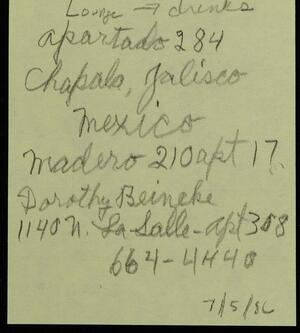 Lounge → drinks
apartado 284
Chapala, Jalisco
Mexico
Madero 210 apt 17
Dorothy Beincke
1140 N. La Salle - apt 308
664-4440
7/5/86